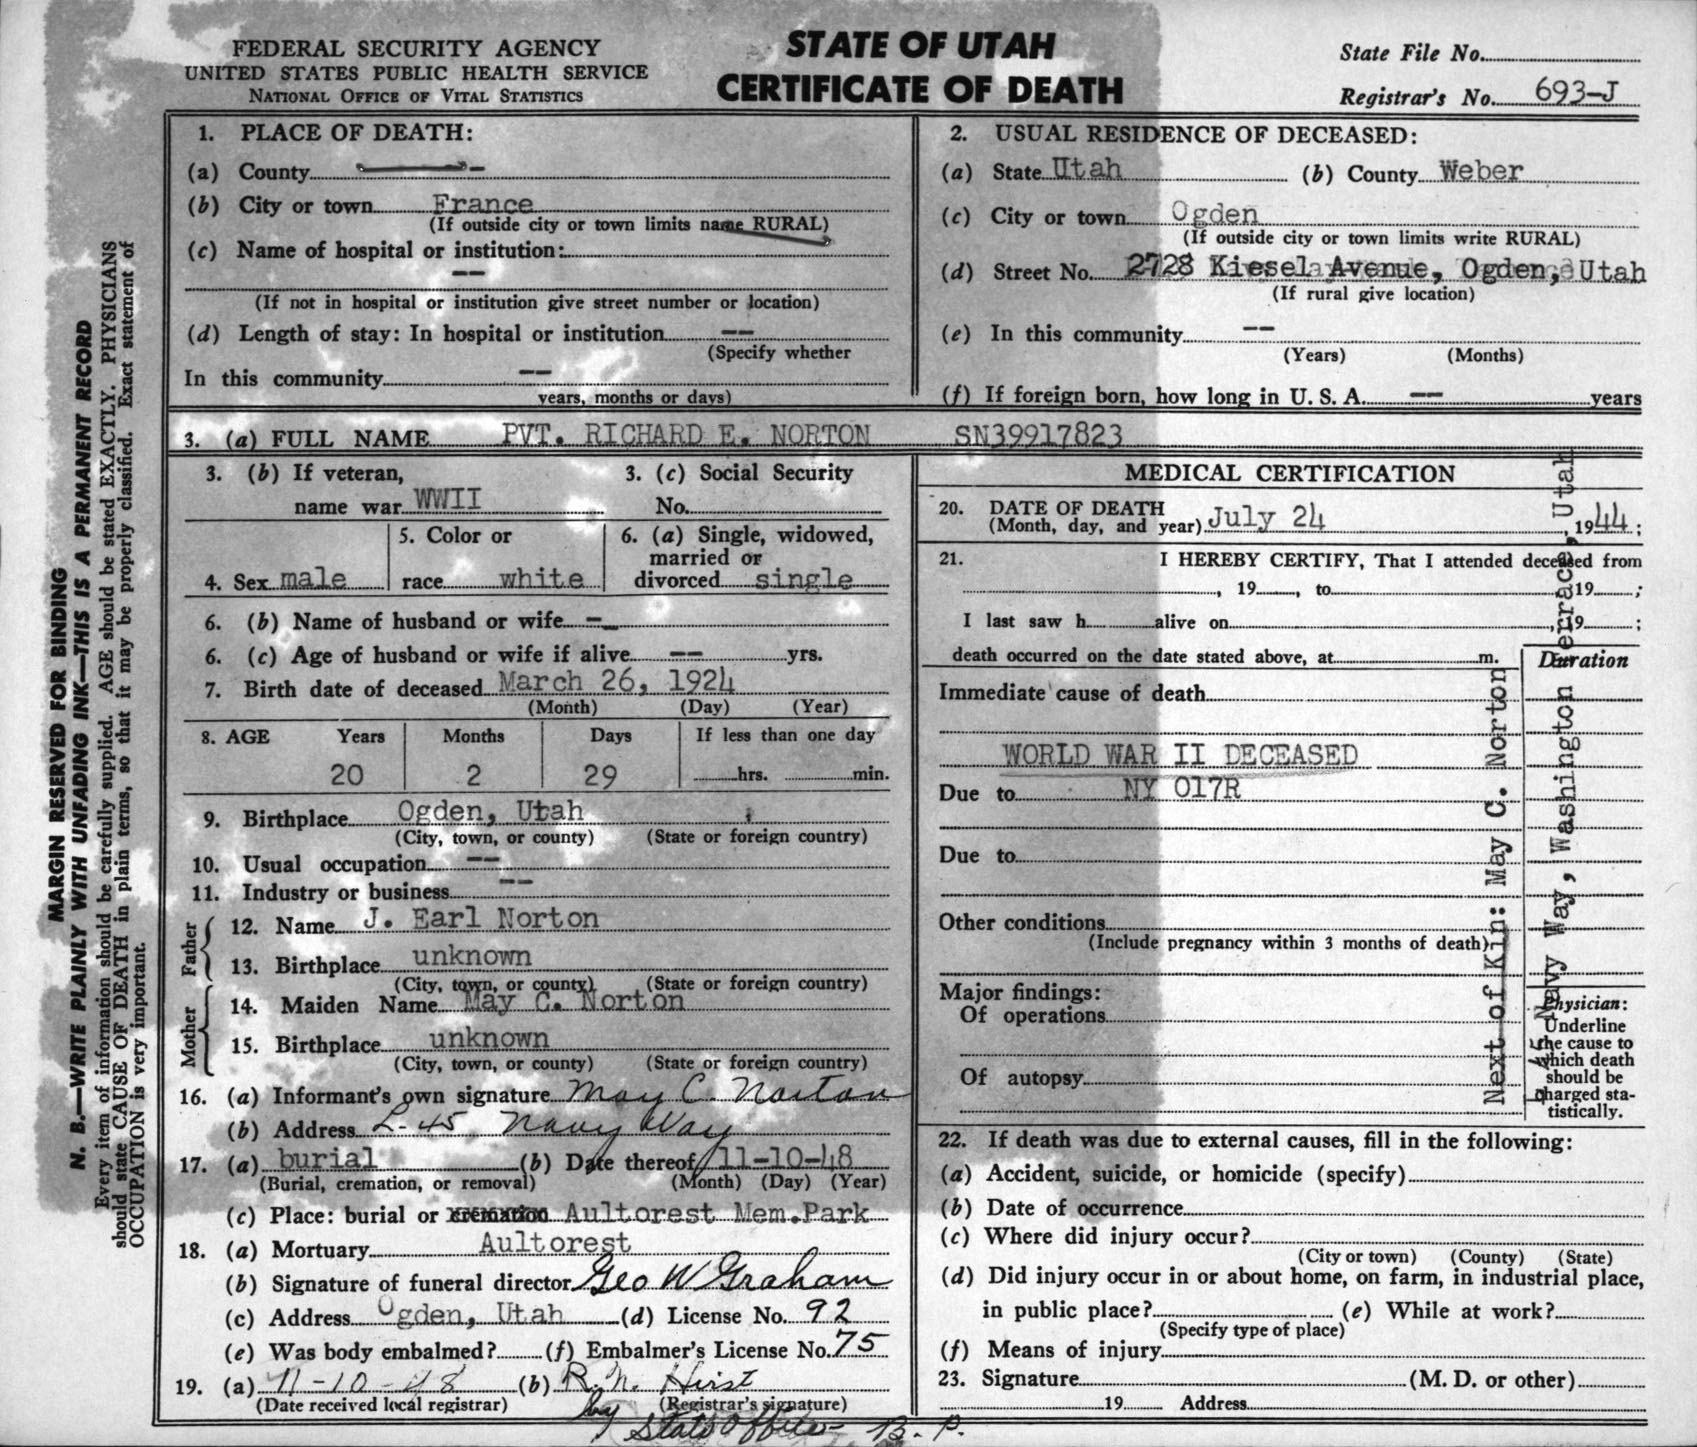 FEDERAL SECURITY AGENCY
UNITED STATES PUBLIC HEALTH SERVICE
NATIONAL OFFICE OF VITAL STATISTICS
STATE OF UTAH
CERTIFICATE OF DEATH
State File No.
Registrar's No. 693-J
1. PLACE OF DEATH:
(a) County --
(b) City or town France
(If outside city or town limits name RURAL)
(c) Name of hospital or institution:
--
(If not in hospital or institution give street number or location)
(d) Length of stay: In hospital or institution --
(Specify whether
In this community --
years, months or days)
2. USUAL RESIDENCE OF DECEASED:
(a) State Utah (b) County Weber
(c) City or town Ogden
(If outside city or town limits write RURAL)
(d) Street No. 2728 Kiesel Avenue, Ogden, Utah
(If rural give location)
(e) In this community --
(Years) (Months)
(f) If foreign born, how long in U. S. A. -- years
3. (a) FULL NAME PVT. RICHARD E. NORTON SN39917823
3. (b) If veteran,
name war WWII
3. (c) Social Security
No.
4. Sex male
5. Color or
race white
6. (a) Single, widowed,
married or
divorced single
6. (b) Name of husband or wife --
6. (c) Age of husband or wife if alive -- yrs.
7. Birth date of deceased March 26, 1924
(Month) (Day) (Year)
8. AGE Years Months Days If less than one day
20 2 29 hrs. min.
9. Birthplace Ogden, Utah
(City, town, or county) (State or foreign country)
10. Usual occupation --
11. Industry or business --
Father
12. Name J. Earl Norton
13. Birthplace unknown
(City, town, or county) (State or foreign country)
Mother
14. Maiden Name May C. Norton
15. Birthplace unknown
(City, town, or county) (State or foreign country)
16. (a) Informant's own signature May C. Norton
(b) Address L-45 Navy Way
17. (a) burial (b) Date thereof 11-10-48
(Burial, cremation, or removal) (Month) (Day) (Year)
(c) Place: burial or cremation Aultorest Mem.Park
18. (a) Mortuary Aultorest
(b) Signature of funeral director Geo W Graham
(c) Address Ogden, Utah (d) License No. 92
(e) Was body embalmed? (f) Embalmer's License No. 75
19. (a) 11-10-48 (b) R. N. Hirst
(Date received local registrar) (Registrar's signature)
by State Office - B. P.
MEDICAL CERTIFICATION
20. DATE OF DEATH
(Month, day, and year) July 24 1944;
21. I HEREBY CERTIFY, That I attended deceased from
, 19 , to 19 ;
I last saw h alive on , 19 ;
death occurred on the date stated above, at m.
Duration
Immediate cause of death
WORLD WAR II DECEASED
Due to NY 017R
Due to
Other conditions
(Include pregnancy within 3 months of death)
Major findings:
Of operations
Of autopsy
Physician:
Underline
the cause to
which death
should be
charged sta-
tistically.
Next of Kin: May C. Norton
L 45 Navy Way, Washington Terrace, Utah
22. If death was due to external causes, fill in the following:
(a) Accident, suicide, or homicide (specify)
(b) Date of occurrence
(c) Where did injury occur?
(City or town) (County) (State)
(d) Did injury occur in or about home, on farm, in industrial place,
in public place? (e) While at work?
(Specify type of place)
(f) Means of injury
23. Signature (M. D. or other)
19 Address
MARGIN RESERVED FOR BINDING
N. B.—WRITE PLAINLY WITH UNFADING INK—THIS IS A PERMANENT RECORD
Every item of information should be carefully supplied. AGE should be stated EXACTLY. PHYSICIANS
should state CAUSE OF DEATH in plain terms, so that it may be properly classified. Exact statement of
OCCUPATION is very important.